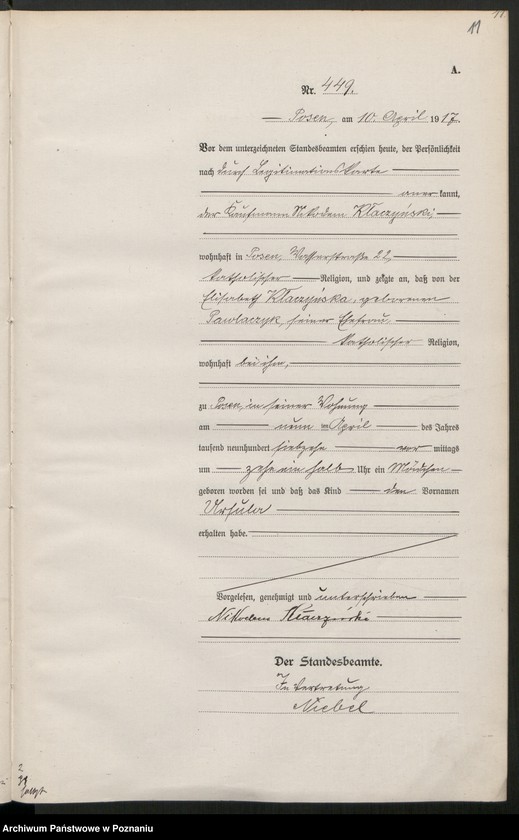 11
A.
Nr. 449.
Posen, am 10. April 1917.
Vor dem unterzeichneten Standesbeamten erschien heute, der Persönlichkeit
nach durch Legitimationskarte
anerkannt,
der Kaufmann Nikodem Kłaczyński,
wohnhaft in Posen, Wasserstraße 22,
katholischer Religion, und zeigte an, daß von der
Elisabeth Kłaczyńska, geborenen
Pawlaczyk, seiner Ehefrau,
katholischer Religion,
wohnhaft bei ihm,
zu Posen, in seiner Wohnung
am neun ten April des Jahres
tausend neunhundert siebzehn vor mittags
um zehn ein halb Uhr ein Mädchen
geboren worden sei und daß das Kind den Vornamen
Ursula
erhalten habe.
Vorgelesen, genehmigt und unterschrieben
Nikodem Kłaczyński
Der Standesbeamte.
In Vertretung
Niebel
Archiwum Państwowe w Poznaniu